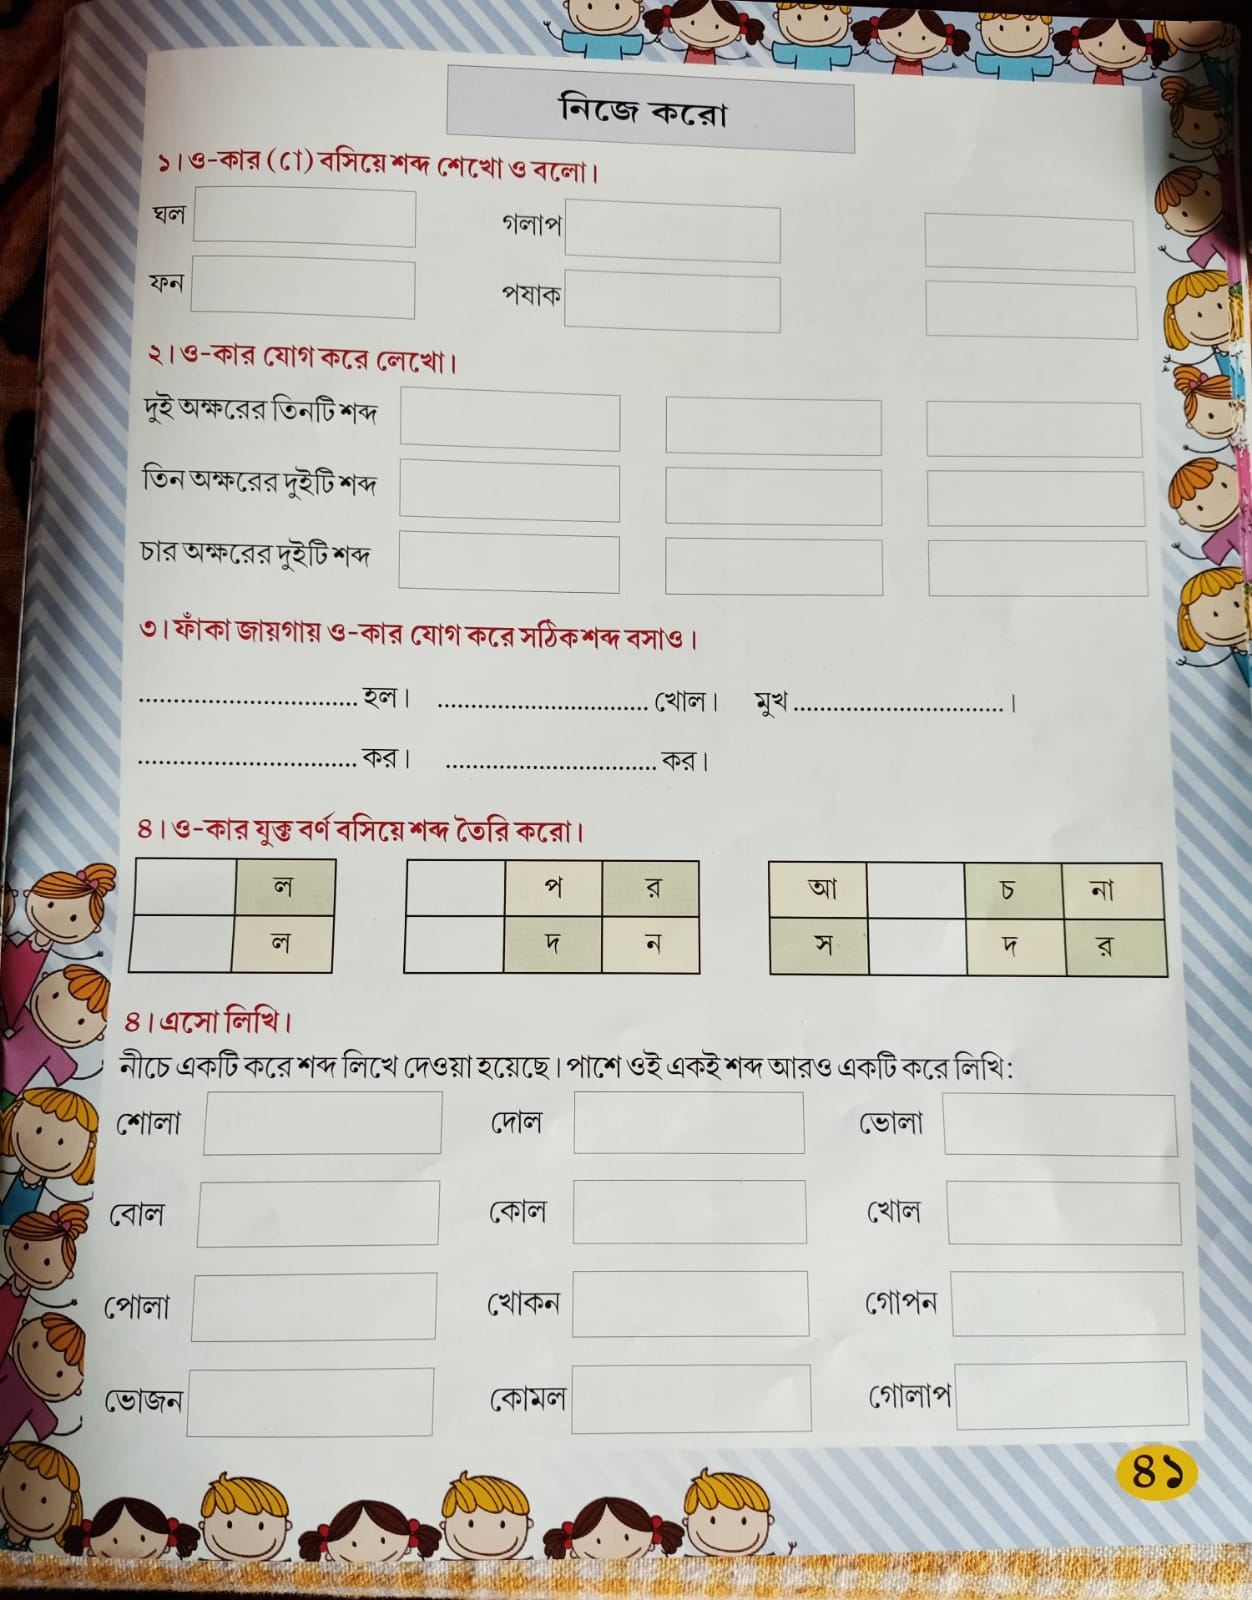 নিজে করো
১। ও-কার (ো) বসিয়ে শব্দ শেখো ও বলো।
ঘল গলাপ
ফন পষাক
২। ও-কার যোগ করে লেখো।
দুই অক্ষরের তিনটি শব্দ
তিন অক্ষরের দুইটি শব্দ
চার অক্ষরের দুইটি শব্দ
৩। ফাঁকা জায়গায় ও-কার যোগ করে সঠিক শব্দ বসাও।
................................ হল। ................................ খোল। মুখ ................................ ।
................................ কর। ................................ কর।
৪। ও-কার যুক্ত বর্ণ বসিয়ে শব্দ তৈরি করো।
ল প র আ চ না
ল দ ন স দ র
৪। এসো লিখি।
নীচে একটি করে শব্দ লিখে দেওয়া হয়েছে। পাশে ওই একই শব্দ আরও একটি করে লিখি:
শোলা দোল ভোলা
বোল কোল খোল
পোলা খোকন গোপন
ভোজন কোমল গোলাপ
৪১